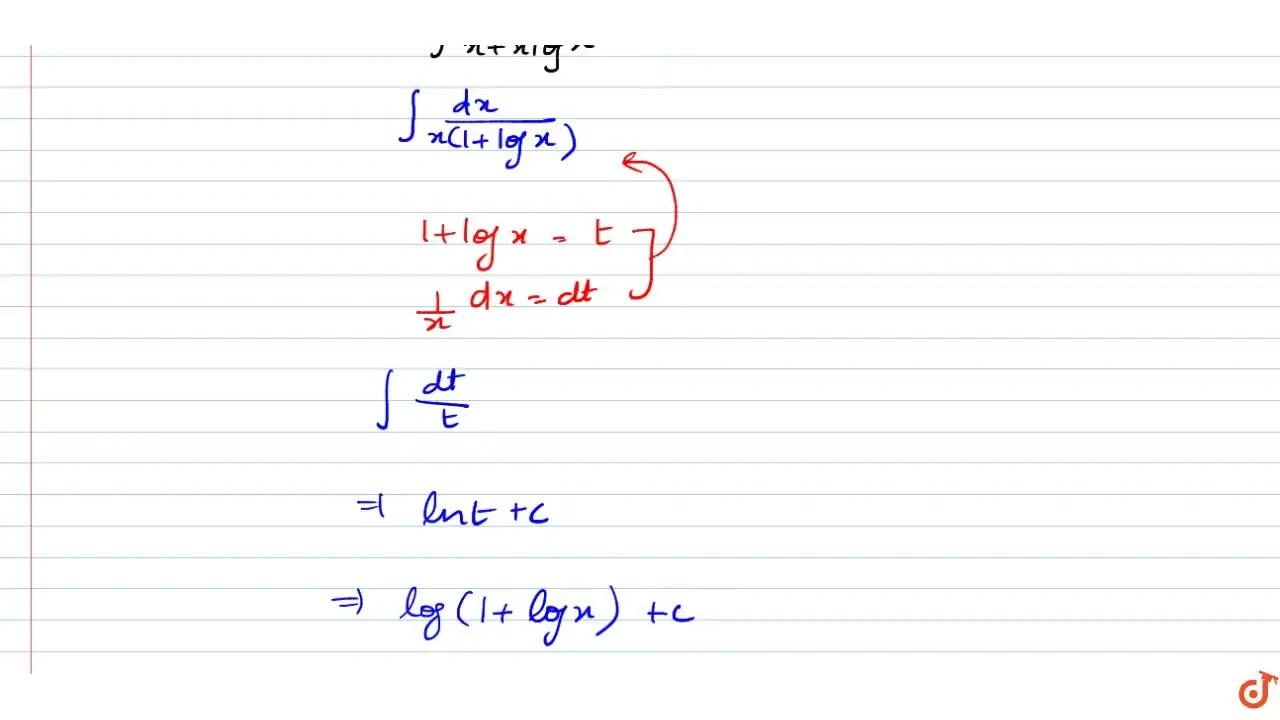 ∫ x+xlogx
∫ dx / x(1+logx)
1+logx = t
1/x dx = dt
∫ dt/t
⇒ lnt+c
⇒ log(1+logx)+c